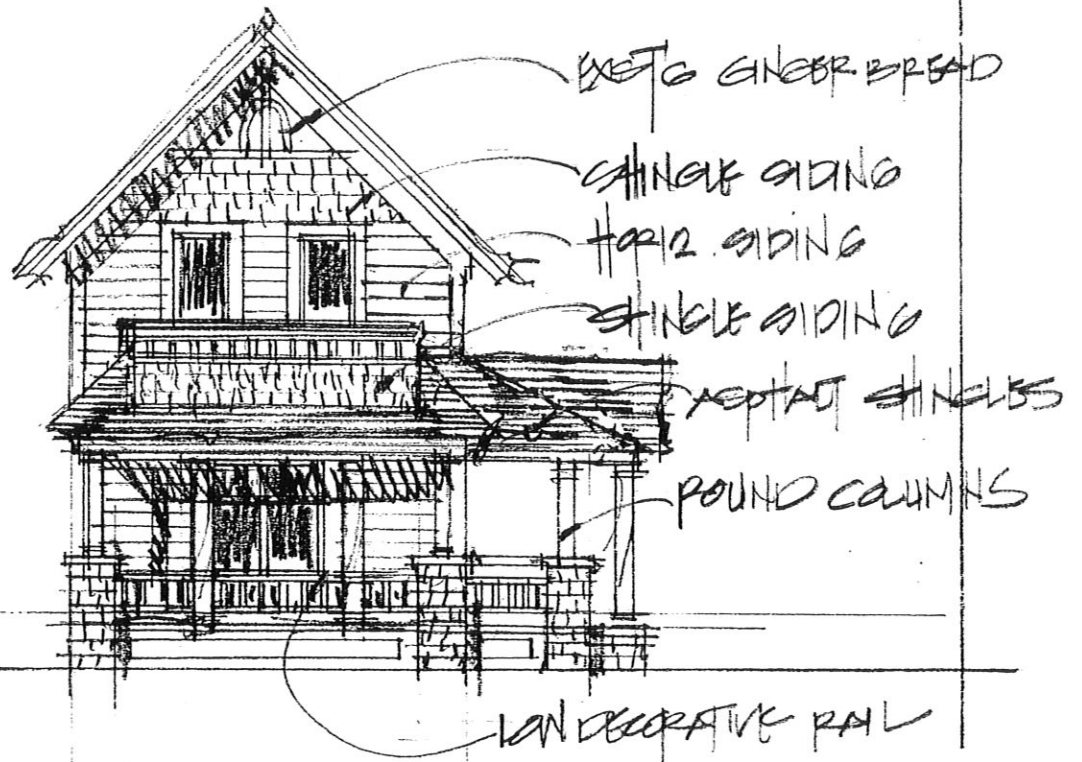 EXST'G GINGERBREAD
SHINGLE SIDING
HORIZ. SIDING
SHINGLE SIDING
ASPHALT SHINGLES
ROUND COLUMNS
LOW DECORATIVE RAIL